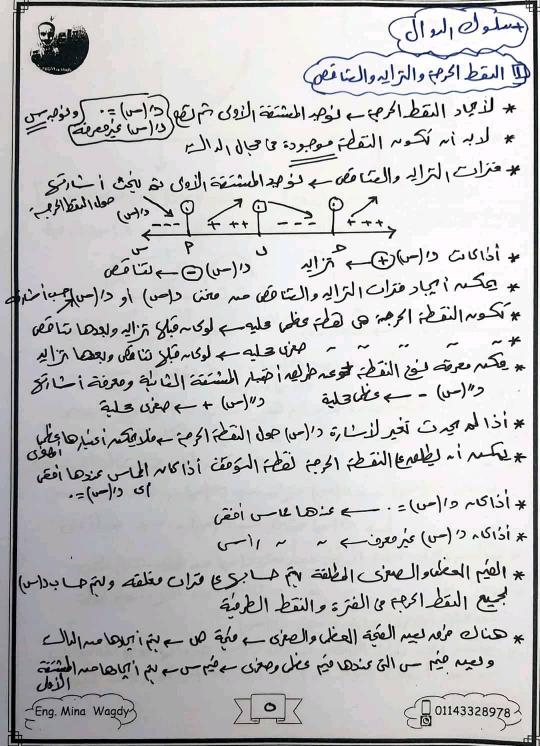 * سلوك الدوال
١ النقط الحرجة والتزايد والتناقص
* لأيجاد النقط الحرجة ← نوجد المشتقة الأولى ثم نضع د/(س) = ٠ ونوجد س
د/(س) غير معرفة
لابد أن تكون النقطة موجودة في مجال الدالة
* فترات التزايد والتناقص ← نوجد المشتقة الأولى ثم نبحث أشارتها
حول النقط الحرجة
د/(س) --- +++ --- +++
س
* أذا كانت د/(س) + ← تزايد د/(س) - ← تناقص
* يمكن أيجاد فترات التزايد والتناقص من منحنى د(س) أو د/(س) حسب أشارته
* تكون النقطة الحرجة هي نقطة عظمى محلية ← لو كان قبلها تزايد وبعدها تناقص
" " " " صغرى محلية ← لو كان قبلها تناقص وبعدها تزايد
* يمكن معرفة نوع النقطة عن طريق أختبار المشتقة الثانية ومعرفة أشارتها
د//(س) - ← عظمى محلية د//(س) + ← صغرى محلية
* أذا لم يحدث تغير لأشارة د/(س) حول النقطة الحرجة ← فلا يمكن أعتبارها عظمى أو صغرى
* يمكن أن يطلق على النقطة الحرجة نقطة التوقف أذا كان المماس عندها أفقى
أى د/(س) = ٠
* أذا كان د/(س) = ٠ ← عندها مماس أفقى
* أذا كان د/(س) غير معرف ← " " رأسى
* القيم العظمى والصغرى المطلقة يتم حسابها في فترات مغلقه ويتم حساب د(س)
لجميع النقط الحرجة في الفترة والنقط الطرفية
* هناك فرق بين القيمة العظمى والصغرى ← قيمة ص ← يتم أيجادها من الدالة
وبين قيم س التى عندها قيم عظمى وصغرى ← قيم س ← يتم أيجادها من المشتقة الأولى
Eng. Mina Wagdy
٥
01143328978